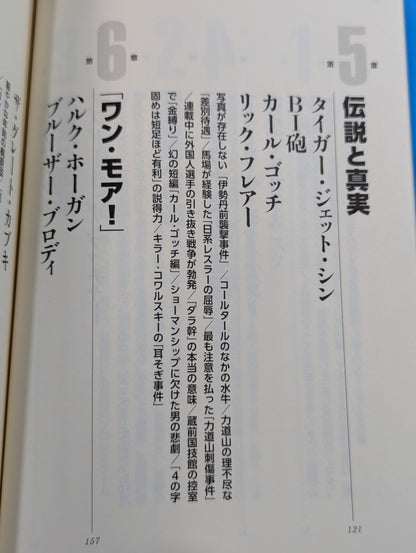 第5章
伝説と真実
タイガー・ジェット・シン
BI砲
カール・ゴッチ
リック・フレアー
写真が存在しない「伊勢丹前襲撃事件」／コールタールのなかの水牛／力道山の理不尽な
「差別待遇」／馬場が経験した「日系レスラーの屈辱」／最も注意を払った「力道山刺傷事件」
／連載中に外国人選手の引き抜き戦争が勃発／「ダラ幹」の本当の意味／蔵前国技館の控室
で「金縛り」／幻の短編「カール・ゴッチ編」／ショーマンシップに欠けた男の悲劇／「4の字
固めは短足ほど有利」の説得力／キラー・コワルスキーの「耳そぎ事件」
121
第6章
「ワン・モア！」
ハルク・ホーガン
ブルーザー・ブロディ
157
ザ・グレート・カブキ